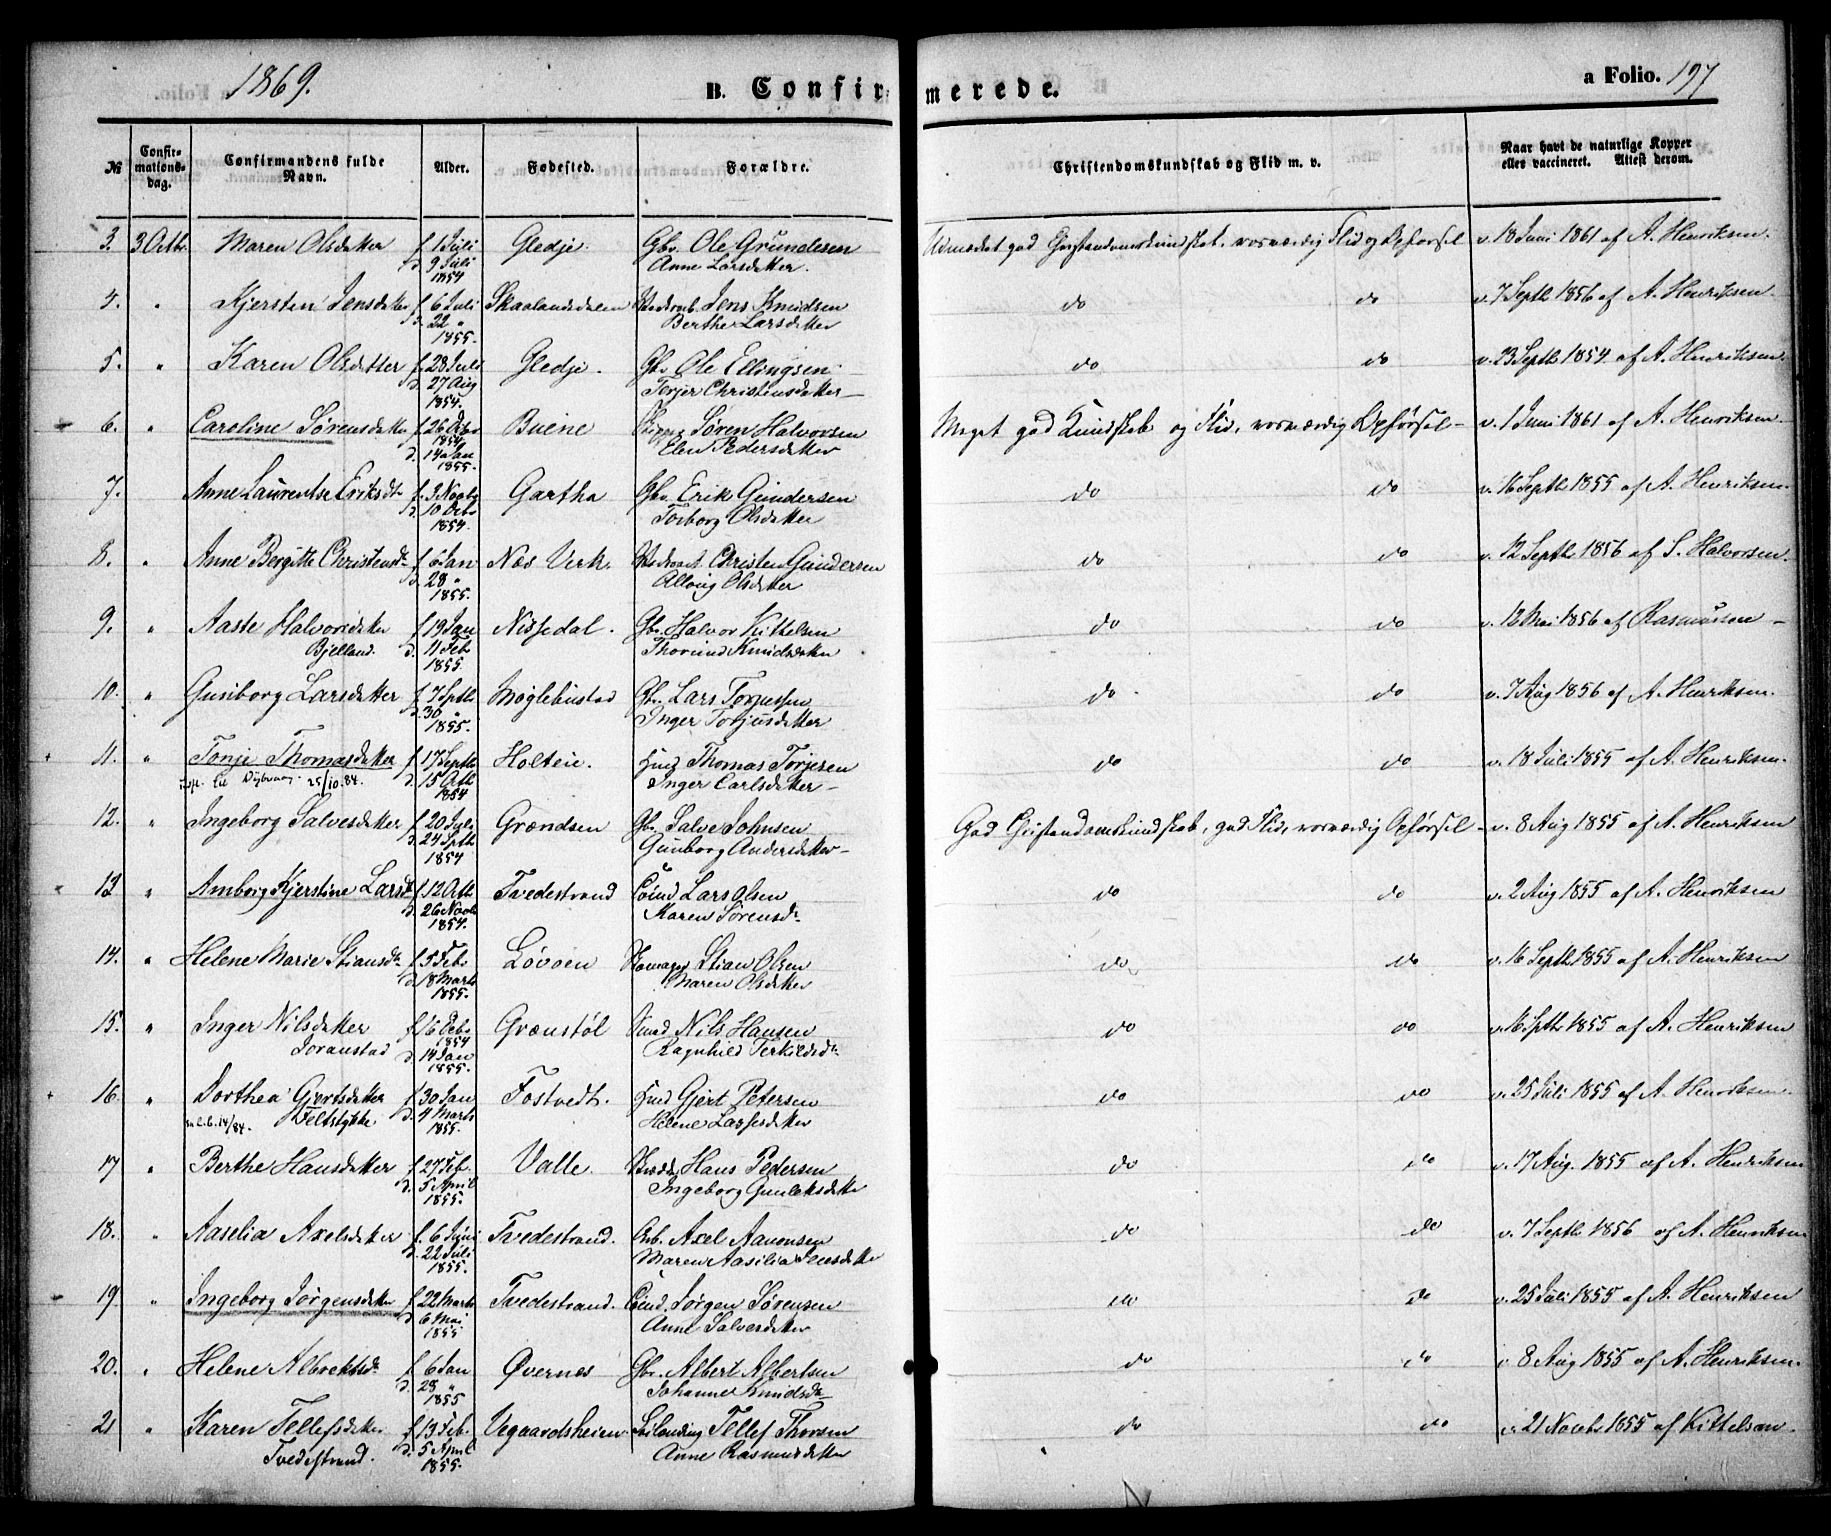 1869.
B. Confirmerede.
a Folio. 197
№ Confirmationsdag. Confirmandens fulde Navn. Alder. Fødested. Forældre. Christendomskundskab og Flid m. v. Naar havt de naturlige Kopper eller vaccineret. Attest derom.
3. 3 Octbr. Maren Olsdatter f. 1 Juli Gledje. Gbr. Ole Grundesen Udmærket god Christendomskundskab, rosværdig Flid og Opførsel v. 18 Juni 1861 af A. Henriksen.
d. 9 Juli Anne Larsdatter.
1854
4. " Kjersten Jensdatter f. 6 Juli Skaalandsdalen Jens Knudsen do do v. 7 Septb 1856 af A. Henriksen.
d. 22 " Berthe Larsdatter
1855.
5. " Karen Olsdatter f. 28 Juli Gledje. Gbr Ole Ellingsen do do v. 23 Septb 1854 af A. Henriksen.
d. 27 Aug Terjer Christensdatter
1854.
6. " Caroline Sørensdatter f. 26 Decbr Buene Søren Halvorsen Meget god Kundskab og Flid, rosværdig Opførsel v. 1 Juni 1861 af A. Henriksen.
1854 Elen Pedersdatter
d. 14 Jan
1855.
7. Anne Laurentse Eriksdtr f. 3 Novbr Gartha Gbr. Erik Gundersen do do v. 16 Septb 1855 af A. Henriksen.
d. 10 Decbr Torborg Olsdatter
1854.
8. " Anne Bergitte Christensdtr f. 6 Jan Næs Verk. Christen Gundersen do do v. 12 Septb 1856 af S. Halvorsen.
d. 28 " Allvig Olsdatter
1855.
9. " Aaste Halvorsdatter f. 19 Jan Nissedal. Gbr. Halvor Kittelsen do do v. 12 Mai 1856 af Rasmussen
Bjelland. d. 11 Feb Thorund Knudsdatter
1855.
10. " Gunborg Larsdatter f. 7 Septb Moglebustad Gbr. Lars Torjussen do do v. 7 Aug 1856 af A. Henriksen.
d. 30 " Inger Torjusdatter
1855.
11. " Tonje Thomasdatter f. 17 Septb Holteie. Huusd Thomas Torjesen do do v. 18 Juli 1855 af A. Henriksen.
til Dybvaag 25/10.84. d. 15 Octb Inger Carlsdatter
1854
12. " Ingeborg Salvesdatter f. 20 Juli Grændsen Gbr. Salve Johnsen God Christendomskundskab, god Flid, rosværdig Opførsel v. 8 Aug 1855 af A. Henriksen
d. 24 Septb Gunborg Andersdatter
1854
13 " Amborg Kjerstine Larsdtr f. 12 Octb Tvedestrand Lars Olsen do do v. 2 Aug 1855 af A. Henriksen
d. 26 Novb Maren Sørensdtr
1854.
14. " Helene Marie Stiansdtr f. 5 Feb Løvøen Stian Olsen do do v. 16 Septb 1855 af A. Henriksen
d. 18 Marts Maren Olsdatter
1855.
15. " Inger Nilsdatter f. 16 Decbr Grænstøl Nils Hansen do do v. 16 Septb 1855 af A. Henriksen
Joranstad 1854 Ragnhild Terkildsdtr
d. 14 Jan
1855.
16. " Dorthea Gjertsdatter f. 30 Jan Fostvedt. Huusd Gjert Petersen do do v. 25 Juli 1855 af A. Henriksen.
14/84. Feltstykke. d. 4 Marts Helene Larsdatter
1855.
17 " Berthe Hansdatter f. 27 Feb. Valle. Hans Pedersen do do v. 17 Aug. 1855 af A. Henriksen
d. 5 April Ingeborg Gunleksdatter
1855.
18. " Aaselia Axelsdatter f. 6 Juni Tvedestrand. Arb. Axel Aanonsen do do v. 7 Septb 1856 af A. Henriksen
d. 22 Juli Maren Aasilia Jensdatter
1855.
19 " Ingeborg Jørgensdatter f. 22 Marts Tvedestrand. Jørgen Sørensen do do v. 25 Juli 1855 af A. Henriksen
d. 6 Mai Anne Salvesdatter
1855
20. " Helene Albrektsdtr f. 6 Jan Øvernes Gbr. Albert Albertsen do do v. 8 Aug 1855 af A. Henriksen.
d. 28 " Johanne Knudsdtr
1855
21 " Karen Tellefsdatter f. 13 Feb. Vegaardsheien Tellef Thorsen do do v. 21 Novb 1855 af Kittelsen.
Tvedestrand. d. 5 April Anne Rasmusdatter
1855.